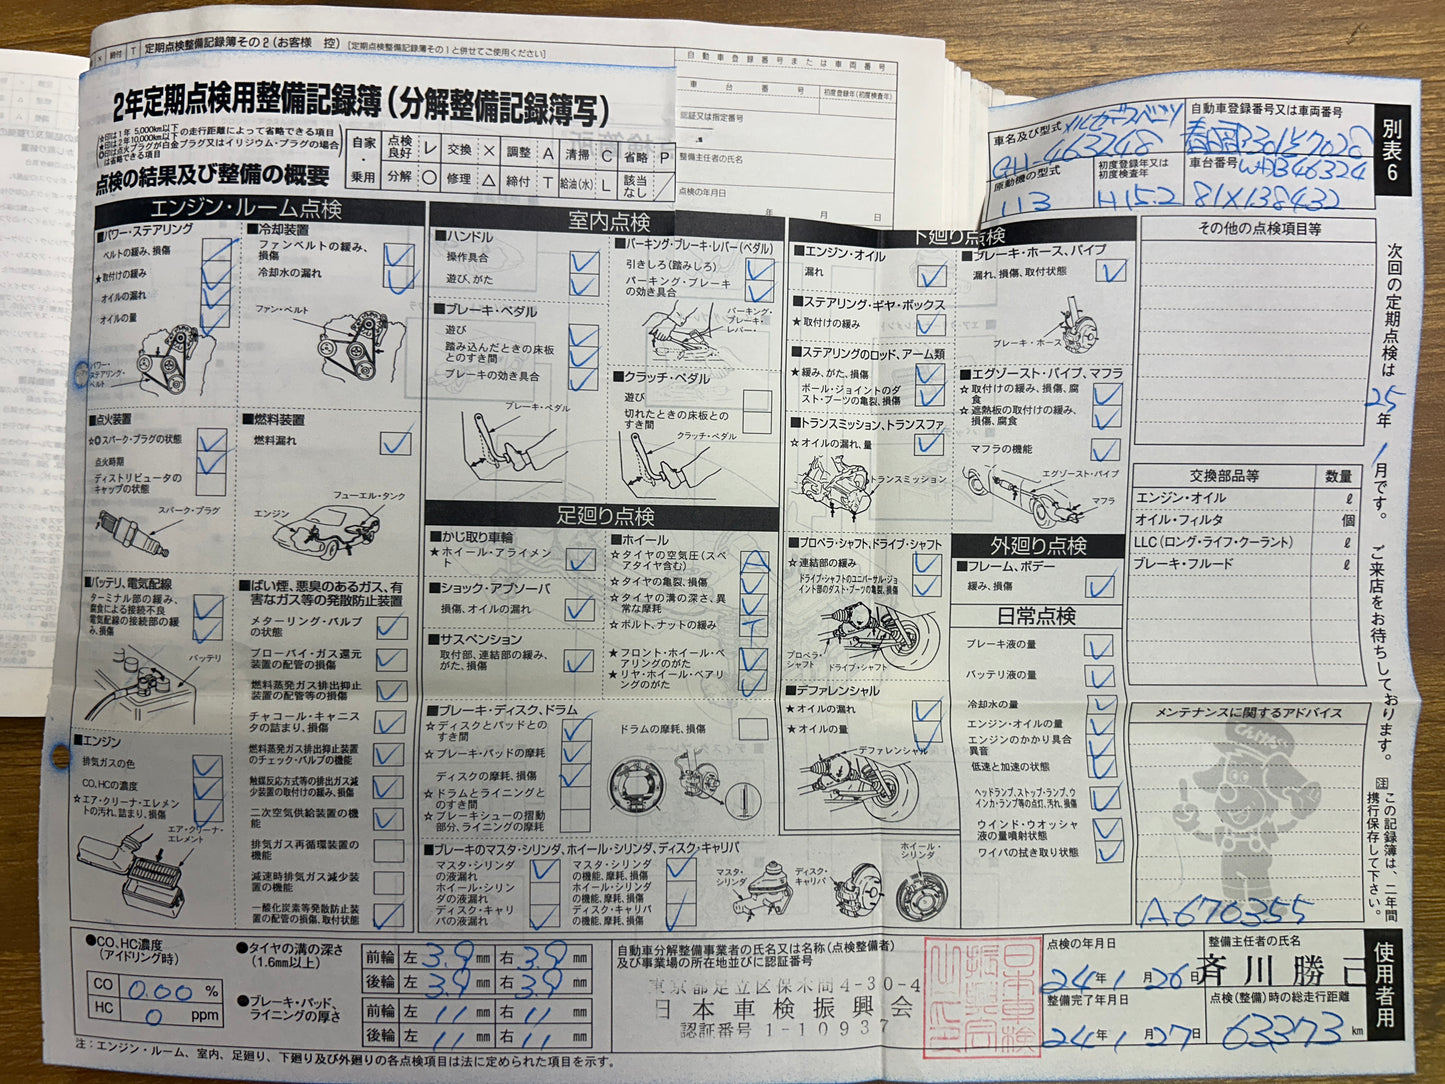 定期点検整備記録簿その2（お客様 控）[定期点検整備記録簿その1と併せてご使用ください]
2年定期点検用整備記録簿（分解整備記録簿写）
☆印は1年 5,000km以下
★印は2年10,000km以下
の走行距離によって省略できる項目
✪印は点火プラグが白金プラグ又はイリジウム・プラグの場合
は省略できる項目
点検の結果及び整備の概要
自家・乗用
点検良好 レ 交換 × 調整 A 清掃 C 省略 P
分解 ○ 修理 △ 締付 T 給油(水) L 該当なし ／
自動車登録番号または車両番号
車台番号 初度登録年(初度検査年)
認証又は指定番号
整備主任者の氏名
点検の年月日
年 月 日
別表6
車名及び型式 メルセデスベンツ
GH-463248
自動車登録番号又は車両番号
原動機の型式
113
初度登録年又は初度検査年
H15.2
車台番号 WDB46324
81X138432
エンジン・ルーム点検
■パワー・ステアリング
ベルトの緩み、損傷
★取付けの緩み
オイルの漏れ
オイルの量
パワー・ステアリング・ベルト
■冷却装置
ファンベルトの緩み、損傷
冷却水の漏れ
ファン・ベルト
■点火装置
スパーク・プラグの状態
点火時期
ディストリビュータのキャップの状態
スパーク・プラグ
■燃料装置
燃料漏れ
フューエル・タンク
エンジン
■バッテリ、電気配線
ターミナル部の緩み、腐食による接続不良
電気配線の接続部の緩み、損傷
バッテリ
■ばい煙、悪臭のあるガス、有害なガス等の発散防止装置
メターリング・バルブの状態
ブローバイ・ガス還元装置の配管の損傷
燃料蒸発ガス排出抑止装置の配管等の損傷
チャコール・キャニスタの詰まり、損傷
燃料蒸発ガス排出抑止装置のチェック・バルブの機能
触媒反応方式等の排出ガス減少装置の取付けの緩み、損傷
二次空気供給装置の機能
排気ガス再循環装置の機能
減速時排気ガス減少装置の機能
一酸化炭素等発散防止装置の配管の損傷、取付状態
■エンジン
排気ガスの色
CO、HCの濃度
☆エア・クリーナ・エレメントの汚れ、詰まり、損傷
エア・クリーナ・エレメント
室内点検
■ハンドル
操作具合
遊び、がた
■ブレーキ・ペダル
遊び
踏み込んだときの床板とのすき間
ブレーキの効き具合
ブレーキ・ペダル
■パーキング・ブレーキ・レバー(ペダル)
引きしろ(踏みしろ)
パーキング・ブレーキの効き具合
パーキング・ブレーキ・レバー
■クラッチ・ペダル
遊び
切れたときの床板とのすき間
クラッチ・ペダル
足廻り点検
■かじ取り車輪
★ホイール・アライメント
■ショック・アブソーバ
損傷、オイルの漏れ
■サスペンション
取付部、連結部の緩み、がた、損傷
■ホイール
☆タイヤの空気圧(スペアタイヤ含む) A
☆タイヤの亀裂、損傷
☆タイヤの溝の深さ、異常な摩耗
☆ボルト、ナットの緩み T
★フロント・ホイール・ベアリングのがた
★リヤ・ホイール・ベアリングのがた
■ブレーキ・ディスク、ドラム
☆ディスクとパッドとのすき間
☆ブレーキ・パッドの摩耗
ディスクの摩耗、損傷
☆ドラムとライニングとのすき間
☆ブレーキシューの摺動部分、ライニングの摩耗
ドラムの摩耗、損傷
■ブレーキのマスタ・シリンダ、ホイール・シリンダ、ディスク・キャリパ
マスタ・シリンダの液漏れ
ホイール・シリンダの液漏れ
ディスク・キャリパの液漏れ
マスタ・シリンダの機能、摩耗、損傷
ホイール・シリンダの機能、摩耗、損傷
ディスク・キャリパの機能、摩耗、損傷
マスタ・シリンダ
ディスク・キャリパ
ホイール・シリンダ
下廻り点検
■エンジン・オイル
漏れ
■ステアリング・ギヤ・ボックス
★取付けの緩み
■ステアリングのロッド、アーム類
★緩み、がた、損傷
ボール・ジョイントのダスト・ブーツの亀裂、損傷
■トランスミッション、トランスファ
☆オイルの漏れ、量
トランスミッション
■プロペラ・シャフト、ドライブ・シャフト
★連結部の緩み
ドライブ・シャフトのユニバーサル・ジョイント部のダスト・ブーツの亀裂、損傷
プロペラ・シャフト
ドライブ・シャフト
■デファレンシャル
★オイルの漏れ
★オイルの量
デファレンシャル
■ブレーキ・ホース、パイプ
漏れ、損傷、取付状態
ブレーキ・ホース
■エグゾースト・パイプ、マフラ
☆取付けの緩み、損傷、腐食
☆遮熱板の取付けの緩み、損傷、腐食
マフラの機能
エグゾースト・パイプ
マフラ
外廻り点検
■フレーム、ボデー
緩み、損傷
日常点検
ブレーキ液の量
バッテリ液の量
冷却水の量
エンジン・オイルの量
エンジンのかかり具合 異音
低速と加速の状態
ヘッドランプ、ストップ・ランプ、ウインカ・ランプ等の点灯、汚れ、損傷
ウインド・ウオッシャ液の量噴射状態
ワイパの拭き取り状態
その他の点検項目等
交換部品等 数量
エンジン・オイル ℓ
オイル・フィルタ 個
LLC(ロング・ライフ・クーラント) ℓ
ブレーキ・フルード ℓ
メンテナンスに関するアドバイス
A670355
次回の定期点検は 25年 1月です。 ご来店をお待ちしております。
注 この記録簿は、二年間携行保存して下さい。
使用者用
●CO、HC濃度(アイドリング時)
CO 0.00 %
HC 0 ppm
●タイヤの溝の深さ(1.6mm以上)
前輪 左 3.9 mm 右 3.9 mm
後輪 左 3.9 mm 右 3.9 mm
●ブレーキ・パッド、ライニングの厚さ
前輪 左 11 mm 右 11 mm
後輪 左 11 mm 右 11 mm
自動車分解整備事業者の氏名又は名称(点検整備者)及び事業場の所在地並びに認証番号
東京都足立区保木間4-30-4
日本車検振興会
認証番号 1-10937
点検の年月日
24年 1月 26日
整備完了年月日
24年 1月 27日
整備主任者の氏名
斉川勝己
点検(整備)時の総走行距離
63373 km
注：エンジン・ルーム、室内、足廻り、下廻り及び外廻りの各点検項目は法に定められた項目を示す。